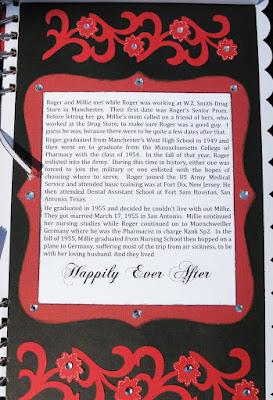 Roger and Millie met while Roger was working at W.Z. Smith Drug
Store in Manchester.  Their first date was Roger's Senior Prom.
Before letting her go, Millie's mom called on a friend of hers, who
worked at the Drug Store, to make sure Roger was a good guy.  I
guess he was, because there were to be quite a few dates after that.
Roger graduated from Manchester's West High School in 1949 and
then went on to graduate from the Massachusetts College of
Pharmacy with the class of 1954.  In the fall of that year, Roger
enlisted into the Army.  During that time in history, either one was
forced to join the military or one enlisted with the hopes of
choosing where to serve.  Roger joined the US Army Medical
Service and attended basic training was at Fort Dix, New Jersey. He
then attended Dental Assistant School at Fort Sam Houston, San
Antonio, Texas.
He graduated in 1955 and decided he couldn't live with out Millie.
They got married March 17, 1955 in San Antonio.  Millie continued
her nursing studies while Roger continued on to Muenchweiller
Germany where he was the Pharmacist in charge Rank Sp2.  In the
fall of 1955, Millie graduated from Nursing School then hopped on a
plane to Germany, suffering most of the trip from air sickness, to be
with her loving husband. And they lived
Happily Ever After